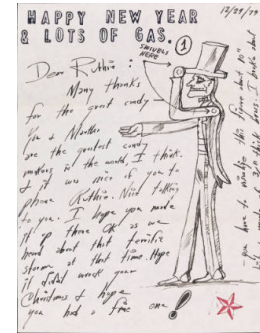 HAPPY NEW YEAR
& LOTS OF GAS.
12/29/79
SWIVELS
HERE
1
Dear Ruthie:
Many thanks
for the great candy
You & Martha
are the greatest candy
makers in the world I think.
& it was nice of you to
phone Ruthie. Nice talking
to you. I hope you made
it up there OK as we
heard about that terrific
storm at that time. Hope
it didnt wreck your
Christmas & hope
you had a fine one!
you have to visualize this figure about 40"